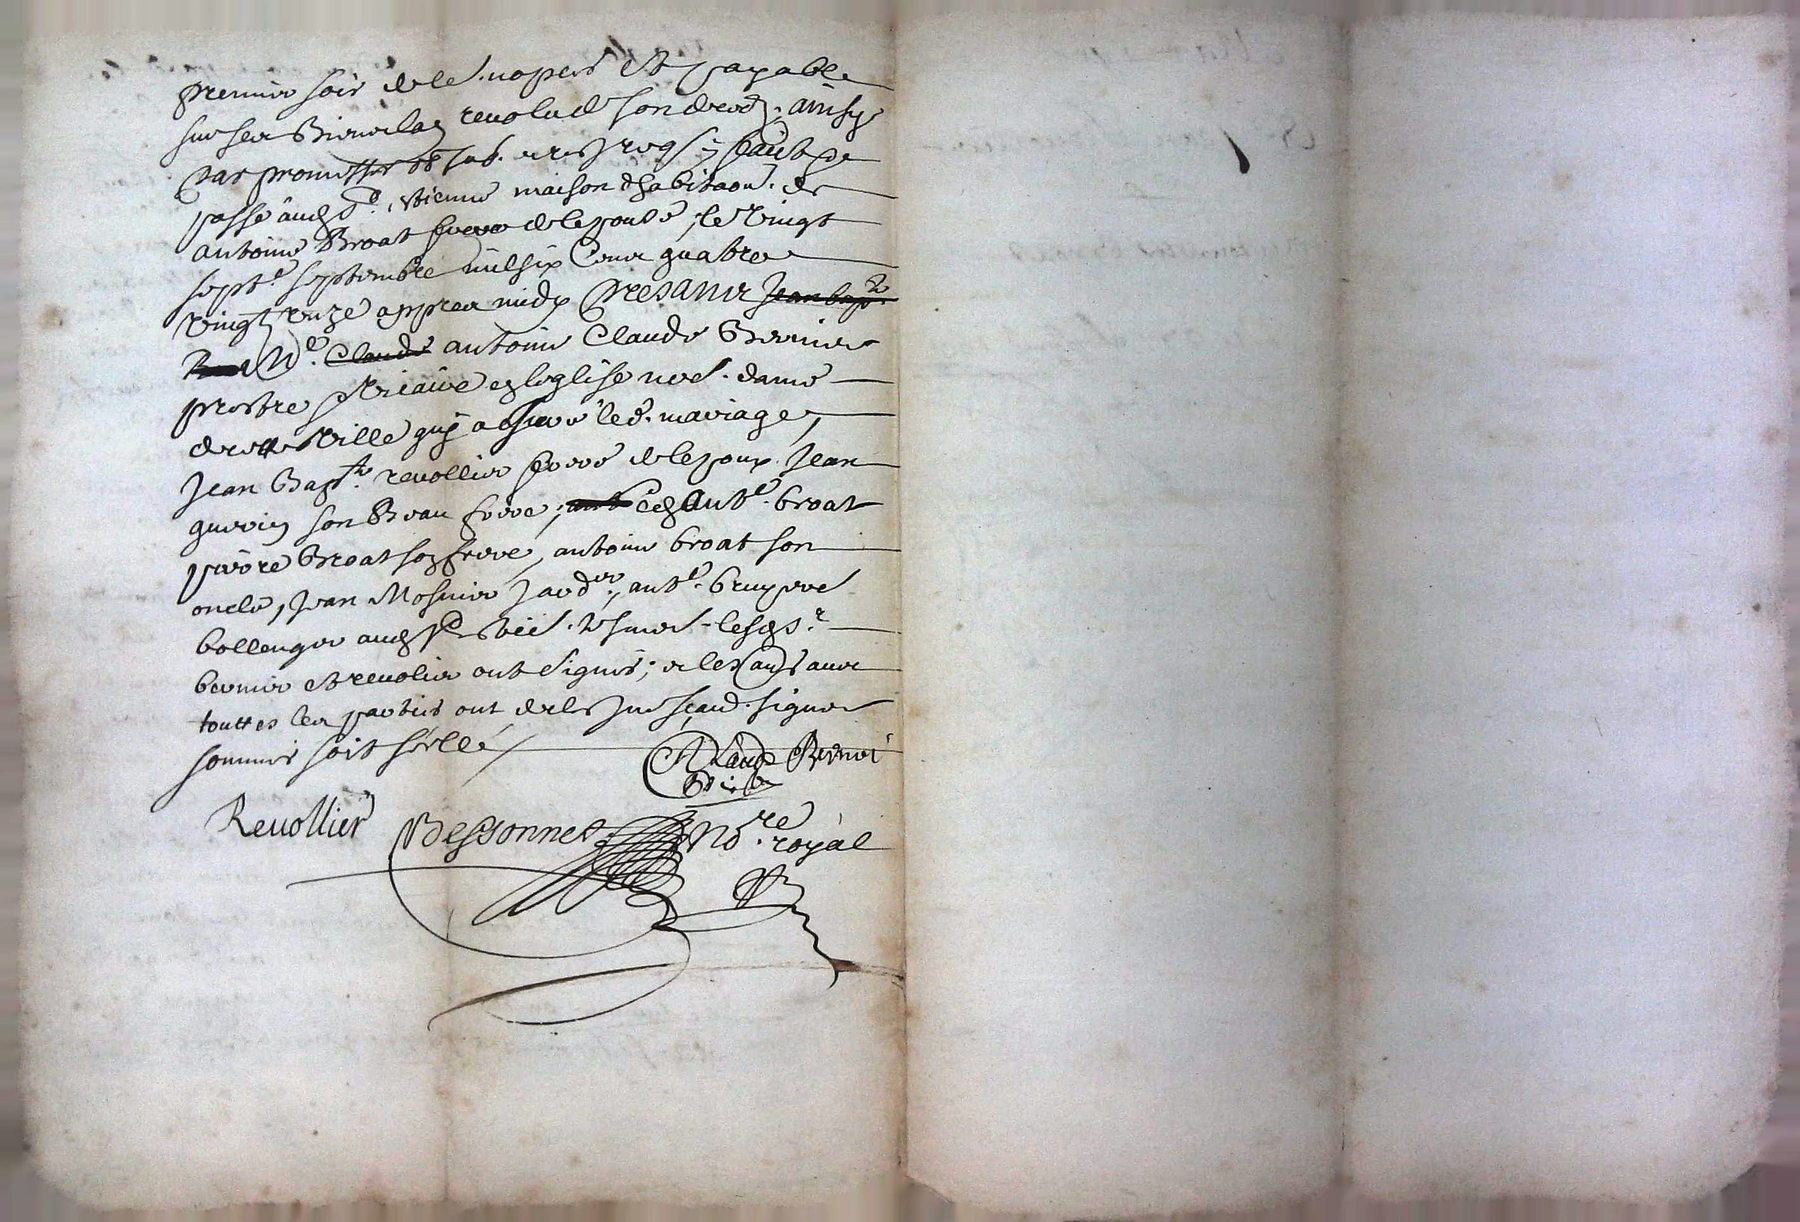 premier soir de le. nopces Et payable
sur ses Biens revolu de son deced, ainsy
par promettes Et fait &
passé aud St. Estienne maison d'habitaon. de
antoine Broat frere de lepouse, le vingt
sept.e septembre mil six Cens quatre
vingt unze appres midy Presants Jean bapte
Me. Claude antoine Claude Bernier
prestre viCaire en leglise nre. dame
de cette Ville quy a le d. mariage,
Jean Bapte. revollier frere de lepoux, Jean
guerin son Beau frere, Ant.e broat
pierre Broat son frere, antoine broat son
oncle, Jean Mosnier Jard.er, ant.e bruyere
bollenger aud St
bernier et revolier ont signés, et les aue
touttes les parties ont de ce scavd. signer
sommes soit séellé
Claude Bernié
Revollier Bessonnet No.re royal